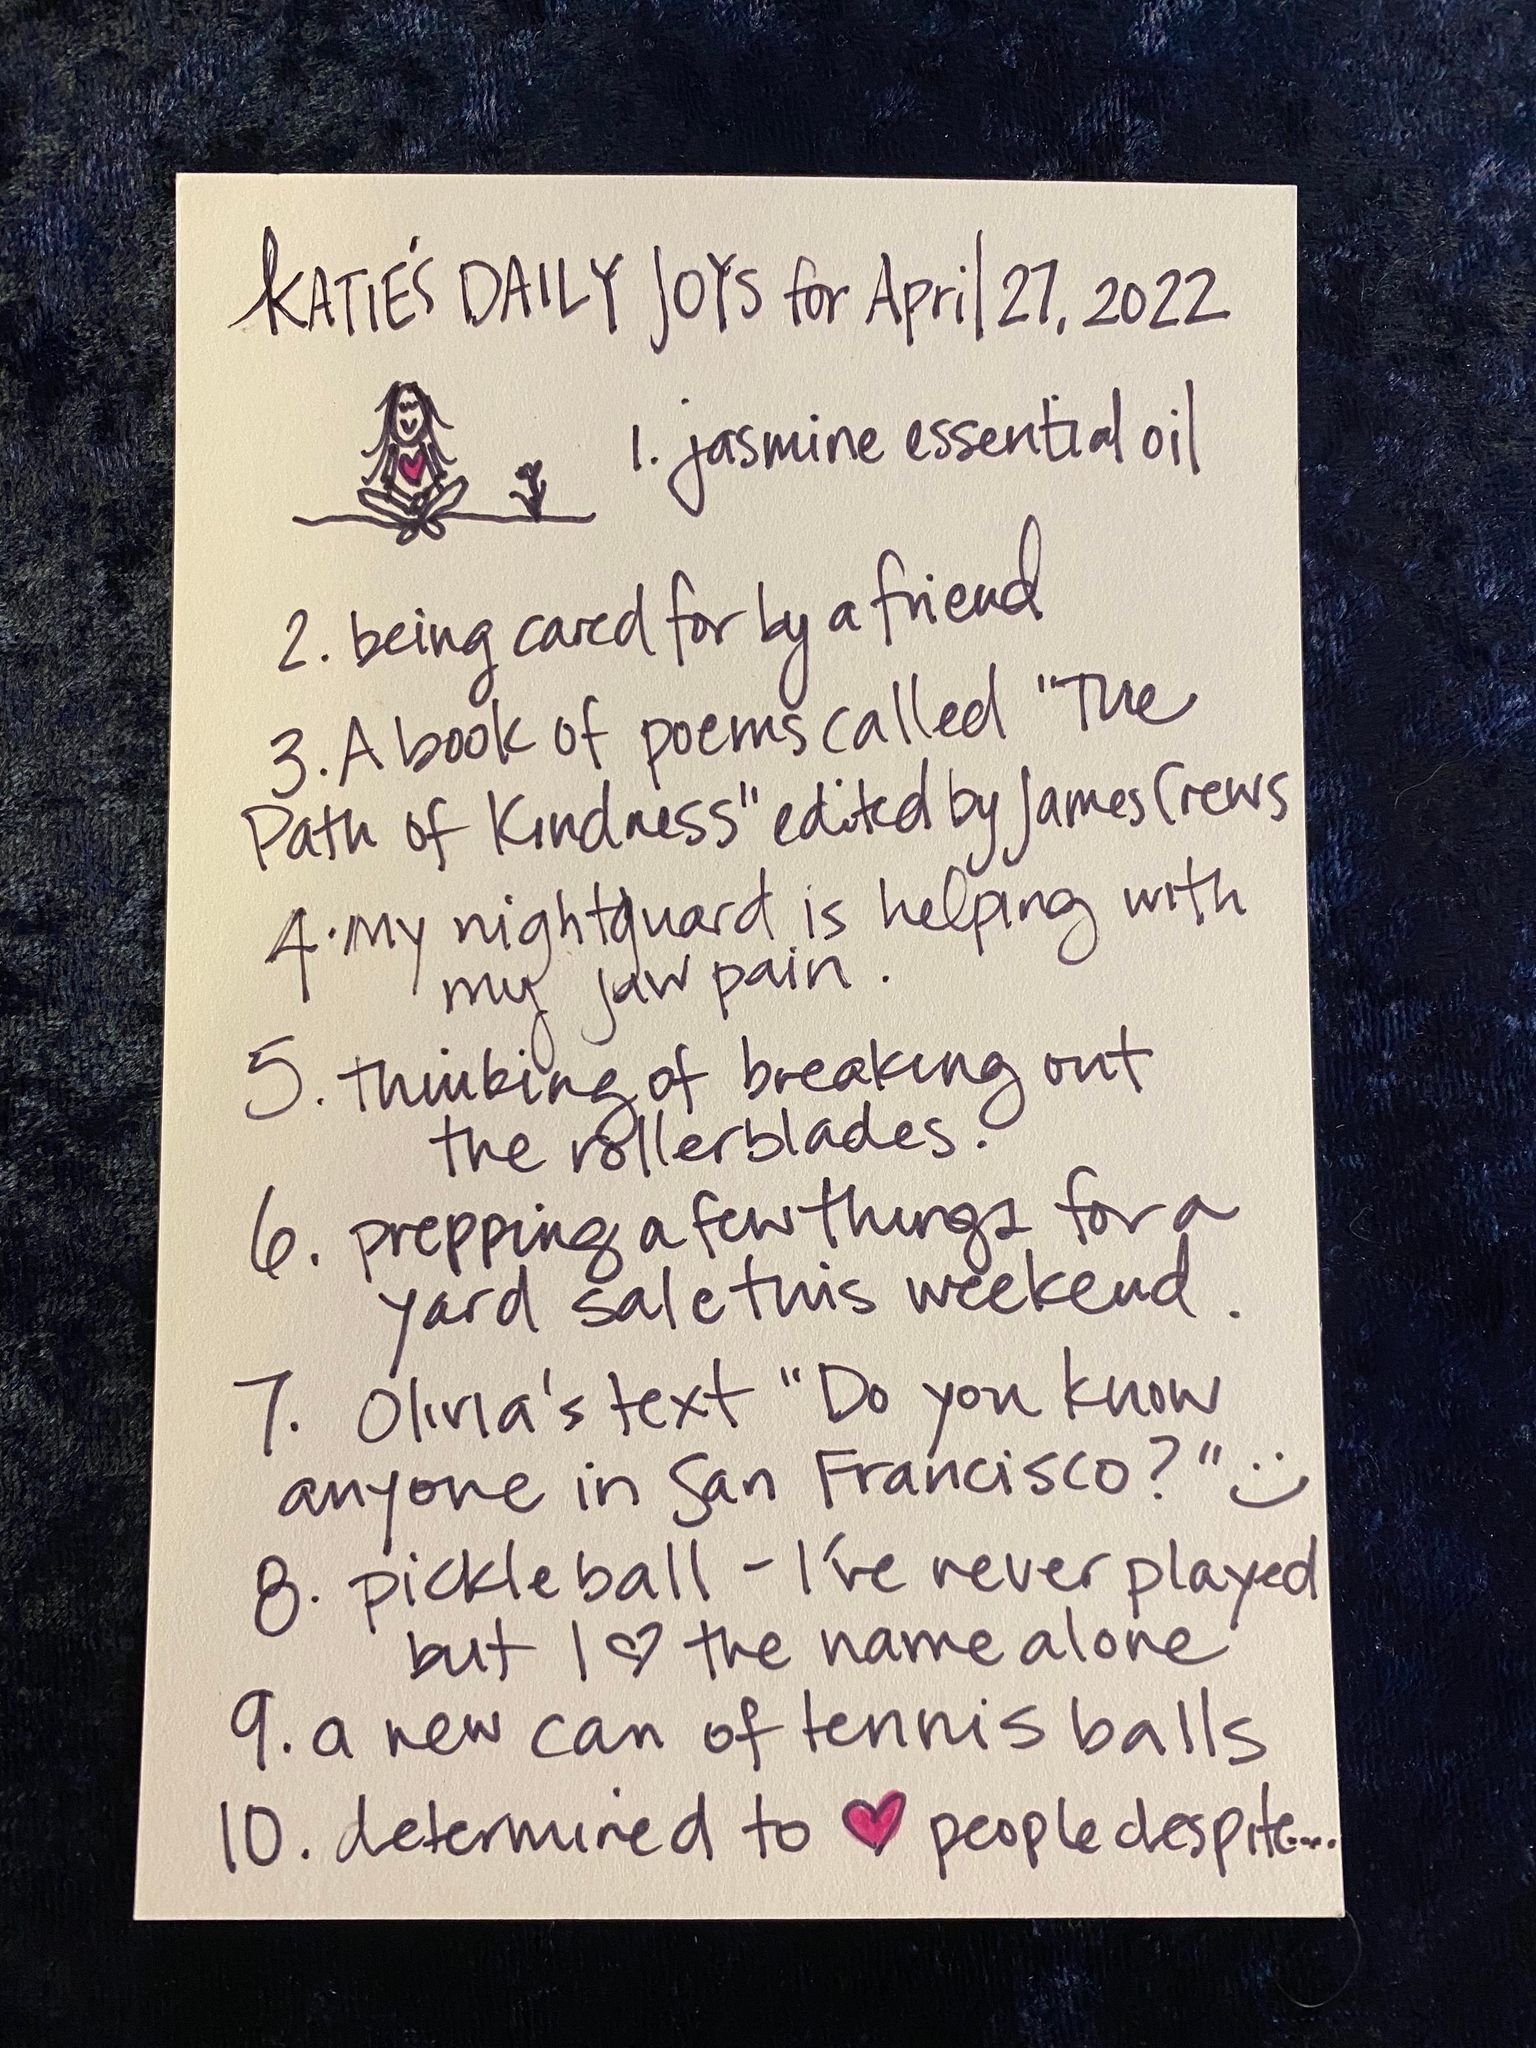 KATIE'S DAILY JOYS for April 27, 2022
1. jasmine essential oil
2. being cared for by a friend
3. A book of poems called "The
Path of Kindness" edited by James Crews
4. My nightguard is helping with
my jaw pain.
5. thinking of breaking out
the rollerblades.
6. prepping a few things for a
yard sale this weekend.
7. Olivia's text "Do you know
anyone in San Francisco?" :)
8. pickleball - I've never played
but I ♡ the name alone
9. a new can of tennis balls
10. determined to ♥ people despite....